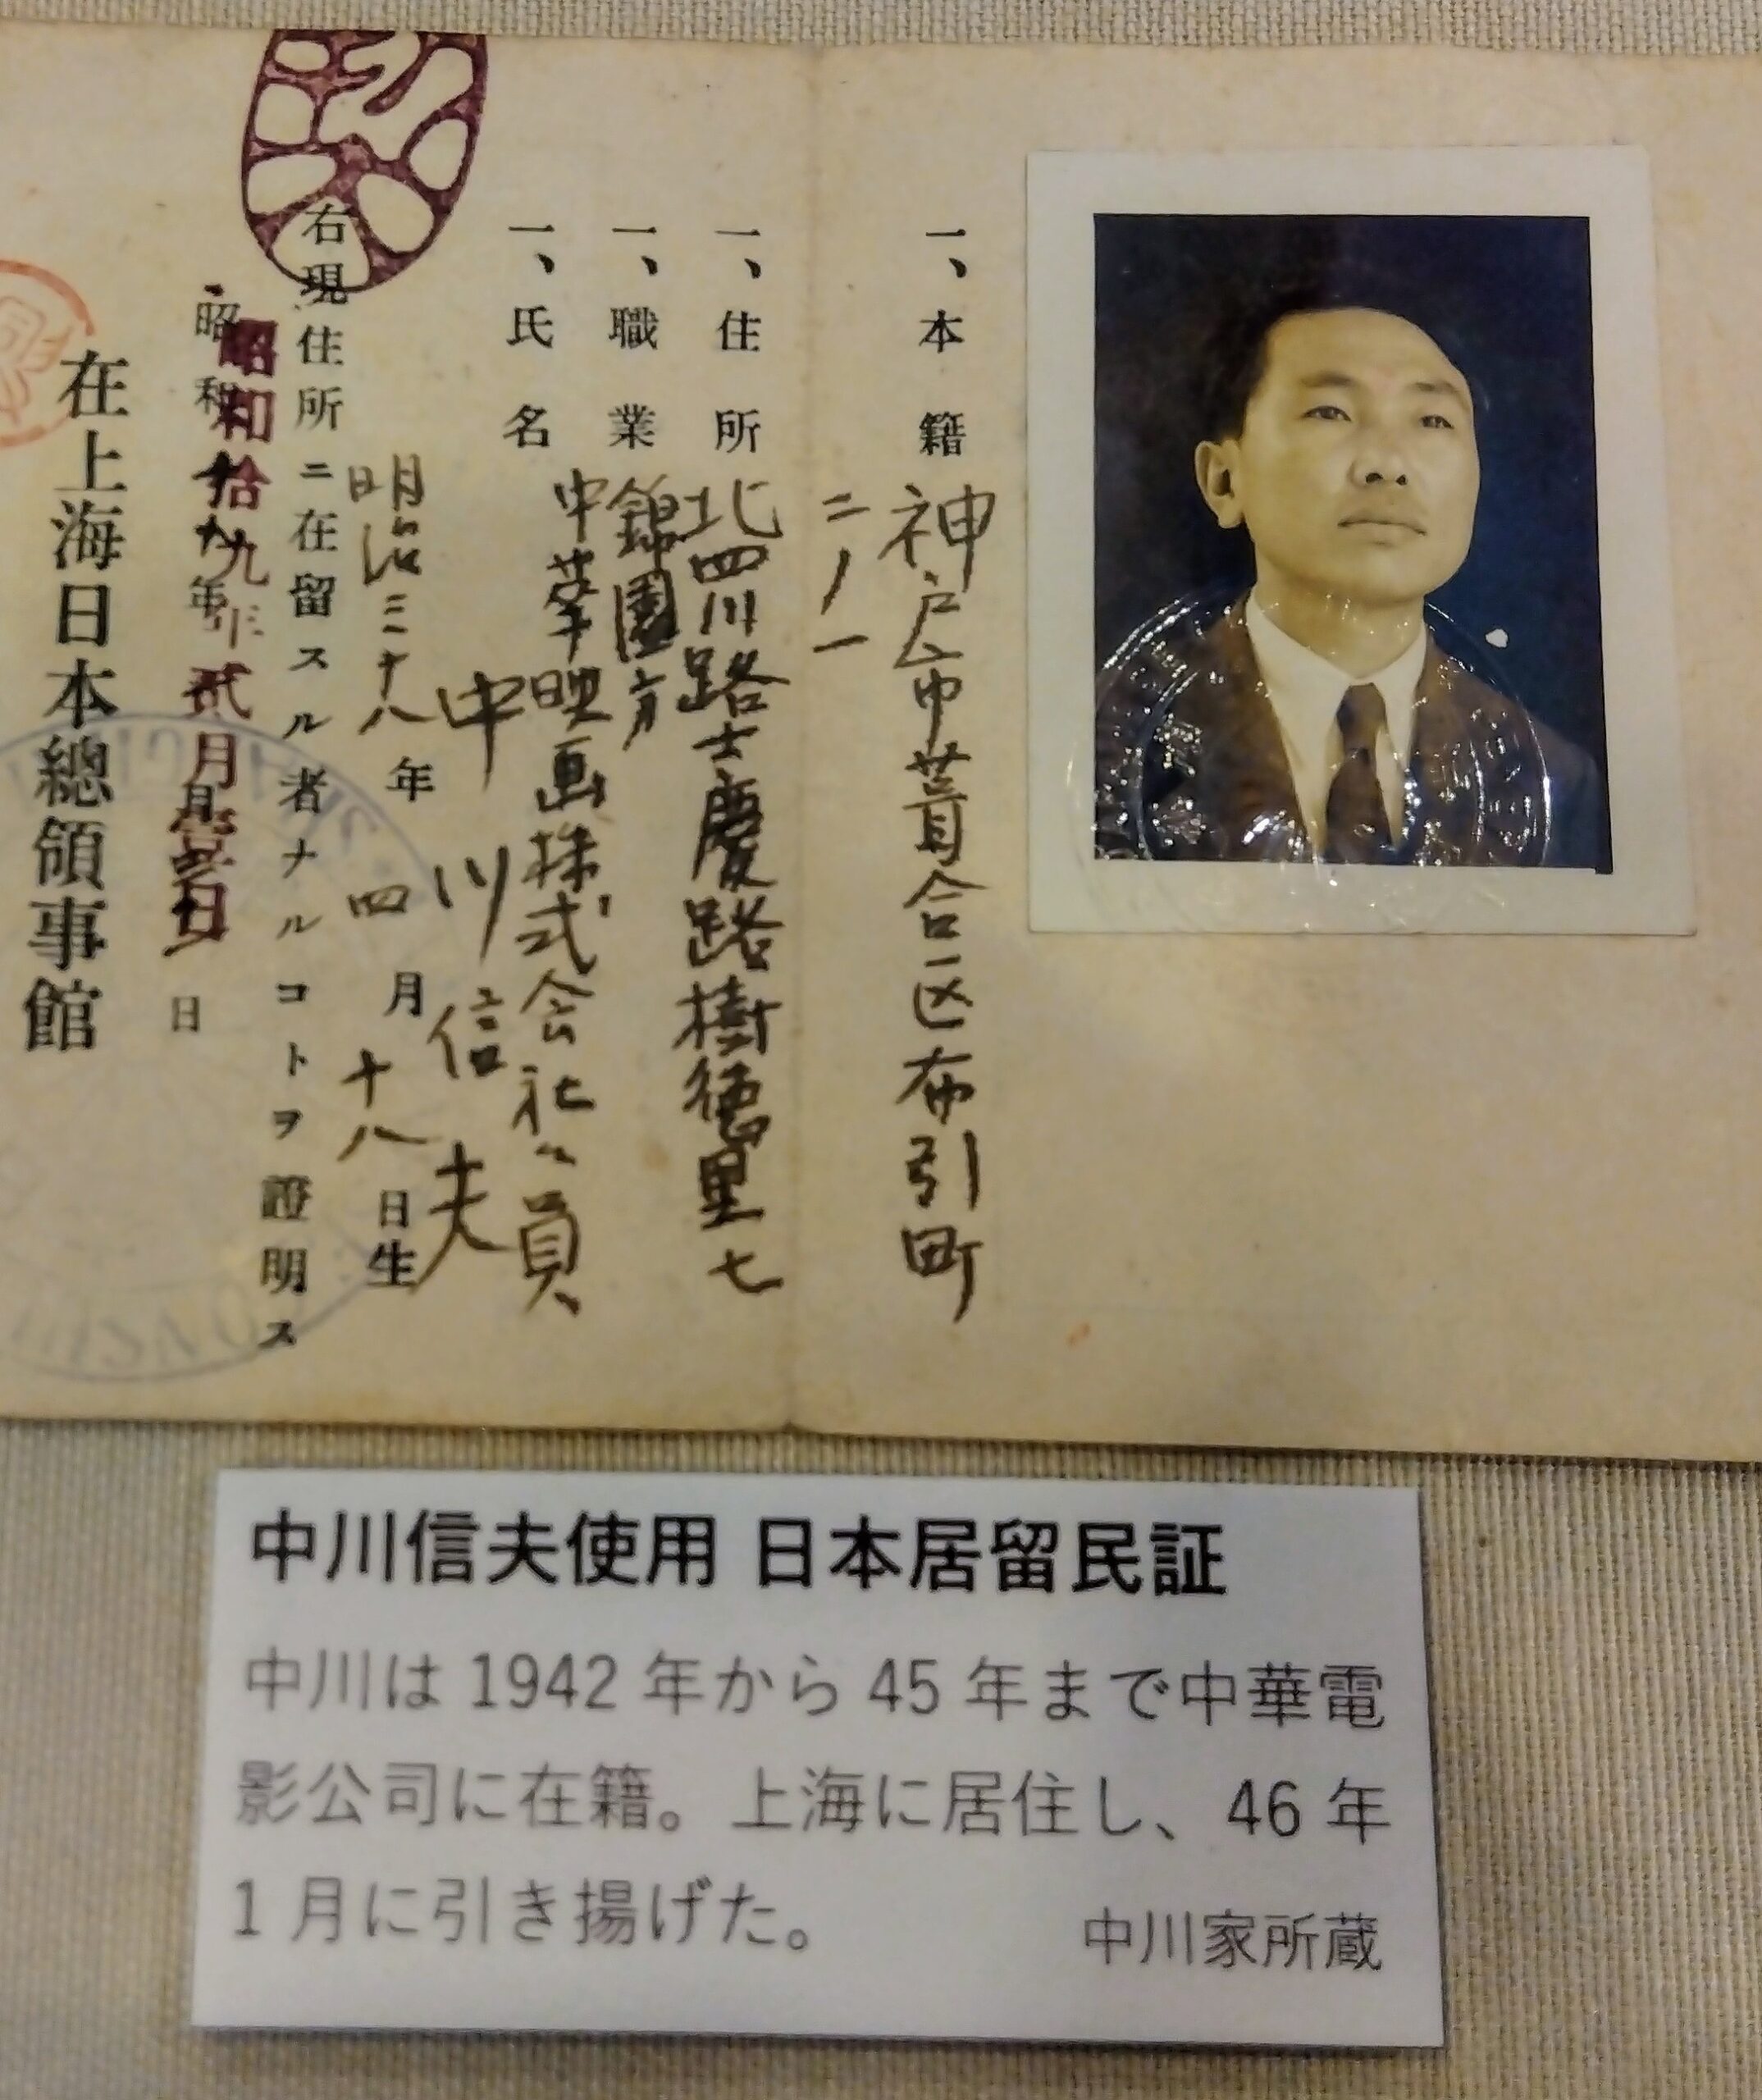 一、本籍 神戸市葺合区布引町
二ノ一
一、住所 北四川路士慶路樹徳里七
一、職業 錦園方
中華映画株式会社々員
一、氏名 中川信夫
明治三十八年四月十八日生
右現住所ニ在留スル者ナルコトヲ證明ス
昭和拾九年貳月壹日
昭和十九年 月 日
在上海日本總領事館
中川信夫使用 日本居留民証
中川は1942年から45年まで中華電
影公司に在籍。上海に居住し、46年
1月に引き揚げた。
中川家所蔵